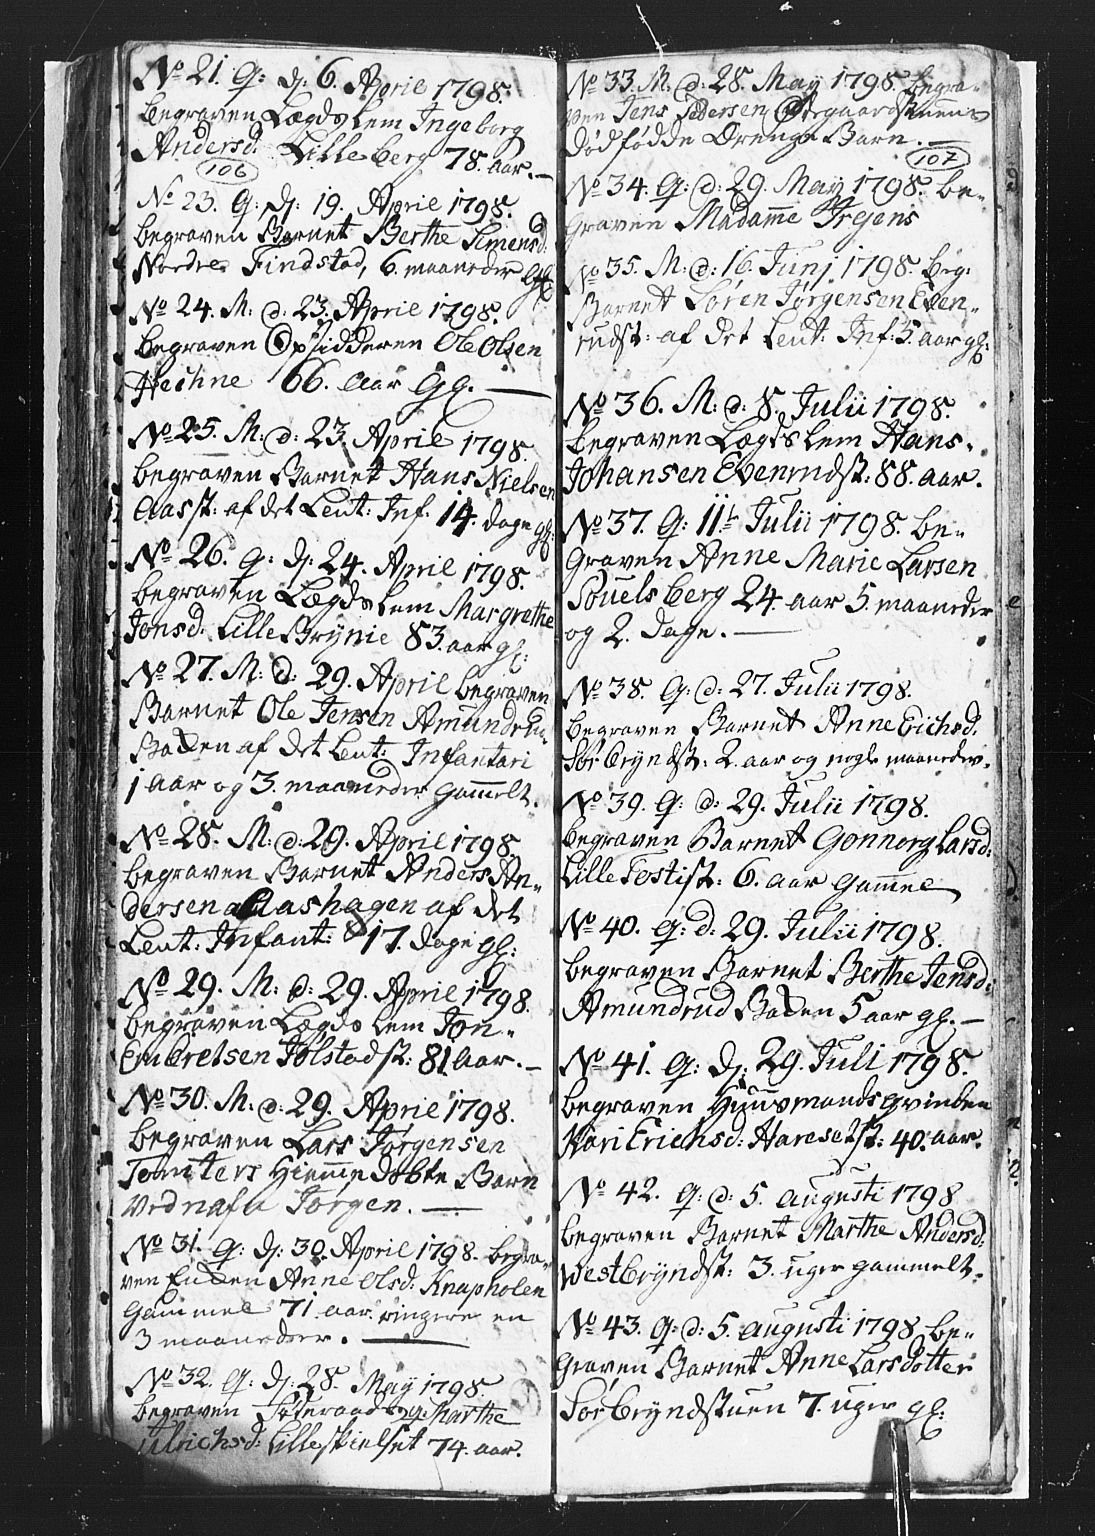 No 21. Q: dj: 6. April 1798.
begraven Lægdslem Ingeborg
Andersd. Lilleberg 78. aar.
106
No 23. Q: dj: 19. April 1798.
begraven Barnet Berthe Simensd:
Nordre Findstad, 6. maaneder gl:
No 24. M: d: 23. April 1798.
begraven Opsidderen Ole Olsen
66. aar gl.
No 25. M: d: 23. April 1798.
begraven Barnet Hans Nielsen
Aasst: af det Leut: Inf. 14. dage gl:
No 26. Q: dj: 24. April 1798.
begraven Lægdslem Margrethe
Jonsd: Lille Brynie 83. aar gl:
No 27. M: d: 29. April begraven
Barnet Ole Jensen Amundrud
Bakken af det Leut: Infantari
1 aar og 3. maaneder gammelt.
No 28. M: d: 29. April 1798
begraven Barnet Anders An-
dersen Aashagen af det
Leut: Infant: 17. dage gl:
No 29. M: d: 29. April 1798.
begraven Lægdslem Jon-
Embretsen Jølstadst: 81 Aar.
No 30. M. d: 29. April 1798.
begraven Lars Jørgensen
Tomters Hiemmedøbte Barn
ved nafn Jørgen.
No 31. Q: dj: 30. April 1798. begra-
ven Enken Anne Olsd: Knapholen
gammel 71. aar ringere en
3 maaneder.
No 32. Q: dj: 28. May 1798.
begraven Føderaads Marthe
Ulrichsd: Lilleskielset 74. aar.
No 33. M. d: 28. May 1798. begra-
ven Jens Pedersen Østgaardstuens
dødfødde Drenge Barn.
107
No 34. Q: d: 29. May 1798. be-
graven Madamme Irgens
No 35. M: d: 16. Junj 1798. beg:
Barnet Søren Jørgensen Even-
rudst: af det Leut: Inf: 5. aar gl:
No 36. M: d: 8. Julii 1798.
begraven Lægdslem Hans
Johansen Evenrudst: 88. aar.
No 37. Q: 11. Julii 1798. be-
graven Anne Marie Larsen
Souelsberg 24. aar 5. maaneder
og 2. dage.
No 38. Q: d: 27. Julii 1798.
begraven Barnet Anne Erichsd.
Sørbryndst: 2. aar og nogle maaneder.
No 39. Q: d: 29. Julii 1798.
begraven Barnet Gonnorg Larsd:
Lille Tostist: 6. aar gammel
No 40. Q: d: 29. Julii 1798.
begraven Barnet Berthe Jensd:
Amundrud Bakken 5 aar gl.
No 41. Q: dj: 29. Juli 1798.
begraven Huusmands qvinden
Kari Erichsd: Haresetst: 40. aar.
No 42. Q: d: 5. augusti 1798
begraven Barnet Marthe Andersd:
Westbryndst: 3. uger gammelt.
No 43. Q: d: 5. augusti 1798 be-
graven Barnet Anne Larsdotter
Sørbryndstuen 7. uger gl: